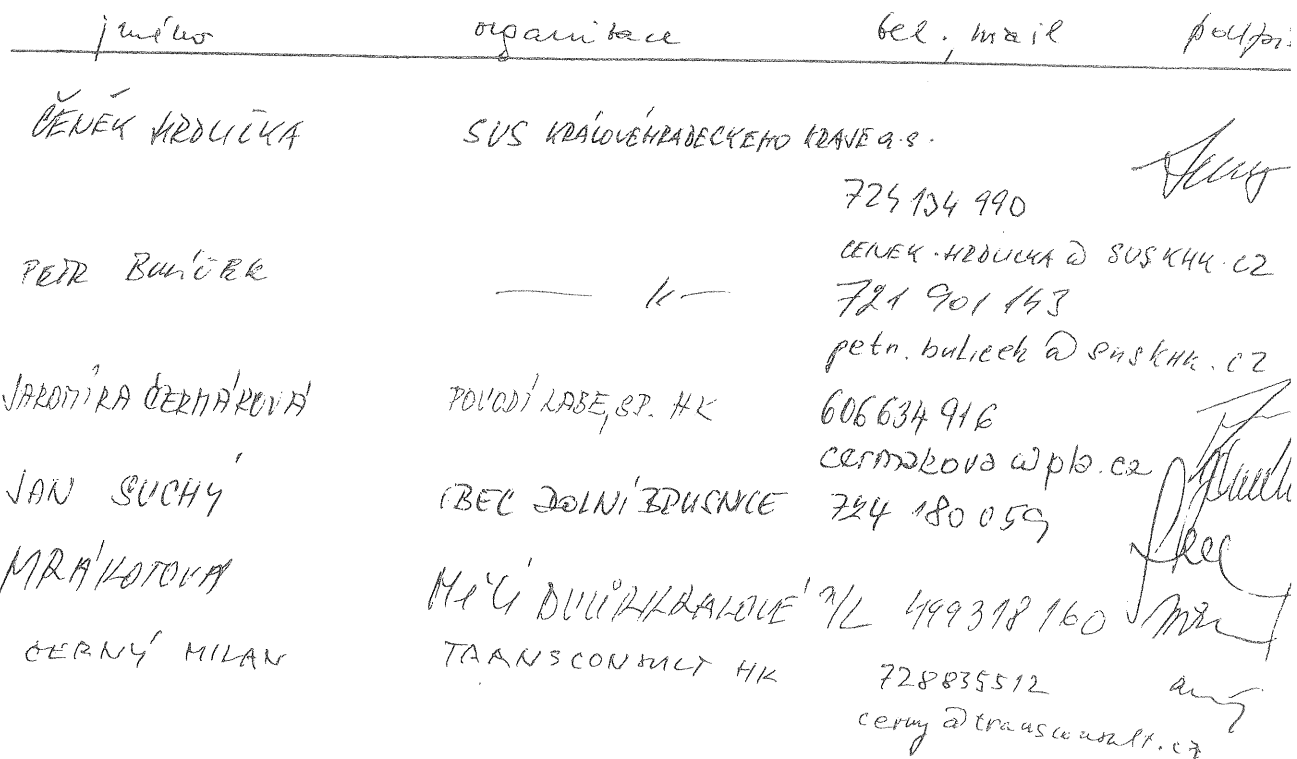 jméno organizace tel., mail podpis
ČENĚK HRDLIČKA SÚS KRÁLOVÉHRADECKÉHO KRAJE a.s.
724 134 990
CENEK.HRDLICKA@SUSKHK.CZ
PETR BULÍČEK —〃— 721 901 143
petr.bulicek@suskhk.cz
JAROMÍRA ČERMÁKOVÁ POVODÍ LABE, SP. HK 606634916
cermakova@pla.cz
JAN SUCHÝ OBEC DOLNÍ BRUSNICE 724 180 059
MRÁKOTOVÁ MěÚ DVŮR KRÁLOVÉ n/L 499318160
ČERNÝ MILAN TRANSCONSULT HK 728835512
cerny@transconsult.cz